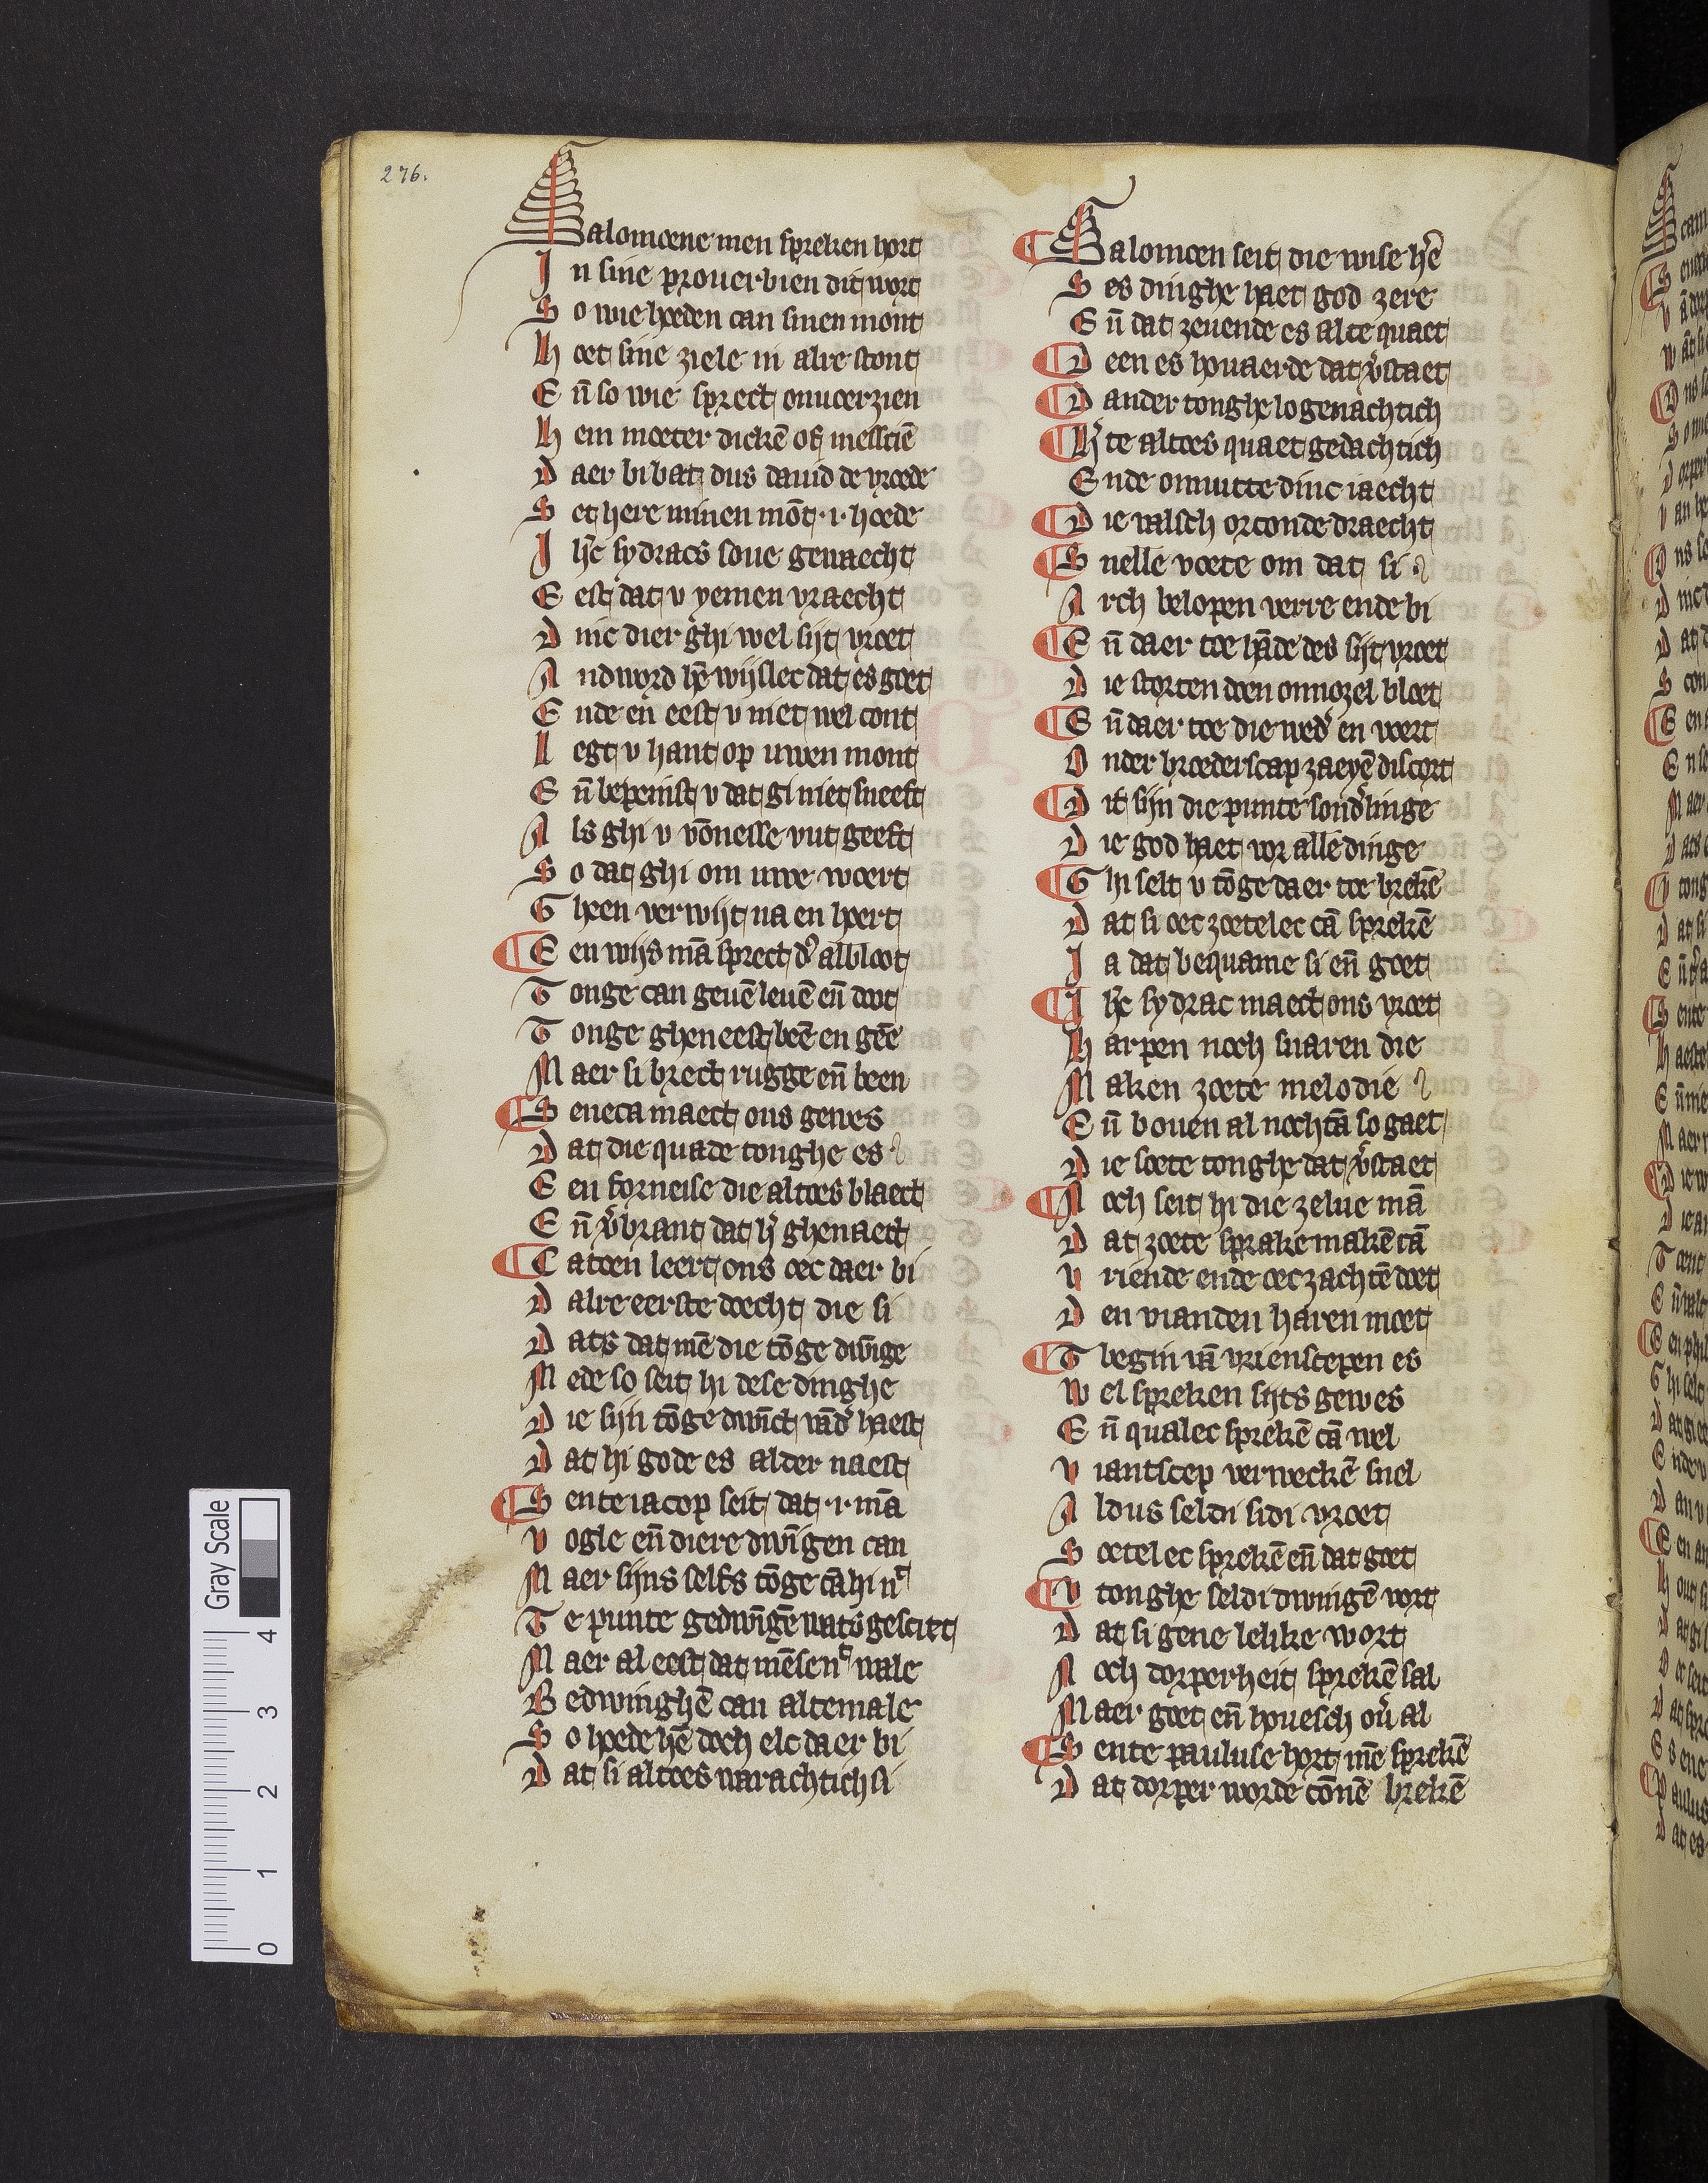 276.
Salomoene men spreken hort
In sine prouerbien dit wort
So wie hoeden can sinen mont
Hoet sine ziele in alre stont
Eñ so wie sprect onuoerzien
Hem moeter dickē of messciē
Daer bi bat dus dauid de vroede
Set here minen mōt .i. hoede
Jhc̄ sydracs sone gewaecht
Eest dat v yemen vraecht
Dinc dier ghi wel sijt vroet
Andword hē wijslec dat es goet
Ende en eest v niet wel cont
Legt v hant op uwen mont
Eñ bepeinst v dat gi niet sneeft
Als ghi v vōnesse vut geeft
So dat ghi om uwe woert
Gheen verwijt na en hoert
Een wijs mā sprect d' al bloot
Tonge can geuē leuē eñ doot
Tonge gheneest beē en geē
Maer si brect rugge eñ been
Seneca maect ons gewes
Dat die quade tonghe es
Een forneise die altoes blaect
Eñ v'brant dat h' ghenaect
Catoen leert ons oec daer bi
Dalre eerste doecht die si
Dats dat mē die tōge dwīge
Mede so seit hi dese dinghe
Die sijn tōge dwīct vād' haest
Dat hi gode es alder naest
Sente iacop seit dat .i. mā
Vogle eñ diere dwīgen can
Maer sijns selfs tōge cā hi nt
Te punte gedwīgē wats gesciet
Maer al eest dat mēse nt wale
Bedwinghē can altemale
So hoede hē doch elc daer bi
Dat si altoes warachtich si
Salomoen seit die wise hē
Ses dinghe haet god zere
Eñ dat zeuende es alte quaet
Deen es houaerde dat v'staet
Dander tonghe logenachtich
H'te altoes quaet gedachtich
Ende onnutte dinc iaecht
Die valsch orconde draecht
Snelle voete om dat si
Arch belopen verre ende bi
Eñ daer toe hāde des sijt vroet
Die storten doen onnozel bloet
Eñ daer toe die wed' en woert
Onder broederscap zaeyē discort
Dit sijn die punte sond'linge
Die god haet vor alle dinge
Ghi selt v tōge daer toe brekē
Dat si oec zoetelec cā sprekē
Ja dat bequame si eñ goet
Jhc̄ sydrac maect ons vroet
Harpen noch snaren die
Maken zoete melodie
Eñ bouen al nochtā so gaet
Die soete tonghe dat v'staet
Noch seit hi die zelue mā
Dat zoete sprake makē cā
Vriende ende oec zachtē doet
Den vianden haren moet
Tbegin vā vrienscepen es
Wel spreken sijts gewes
Eñ qualec sprekē cā wel
Viantscep verweckē snel
Aldus seldi sidi vroet
Soetelec sprekē eñ dat goet
V tonghe seldi dwingē vort
Dat si gene lelike wort
Noch dorperheit sprekē sal
Maer goet eñ houesch ou' al
Sente pauluse hort mē sprekē
Dat dorper worde cōnē brekē
Gray Scale
0 1 2 3 4